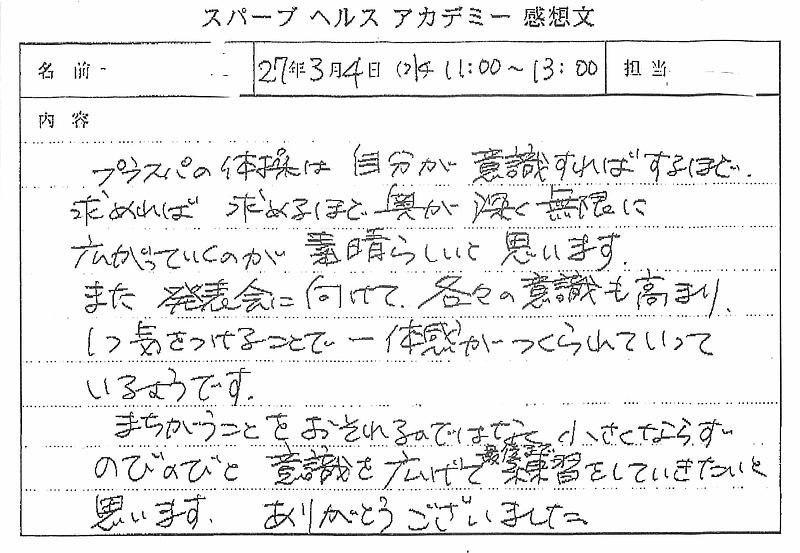 スパーブ ヘルス アカデミー 感想文
名 前
27年3月4日 (水) 11:00～13:00
担 当
内 容
プラスパの体操は 自分が 意識すればするほど、
求めれば 求めるほど 奥が 深く 無限に
広がっていくのが 素晴らしいと 思います。
また 発表会に 向けて、各々の意識も高まり、
1つ気をつけることで 一体感が つくられていって
いるようです。
まちがうことを おそれるのではなく 小さくならず
のびのびと 意識を 広げて 最後まで 練習をしていきたいと
思います。 ありがとうございました